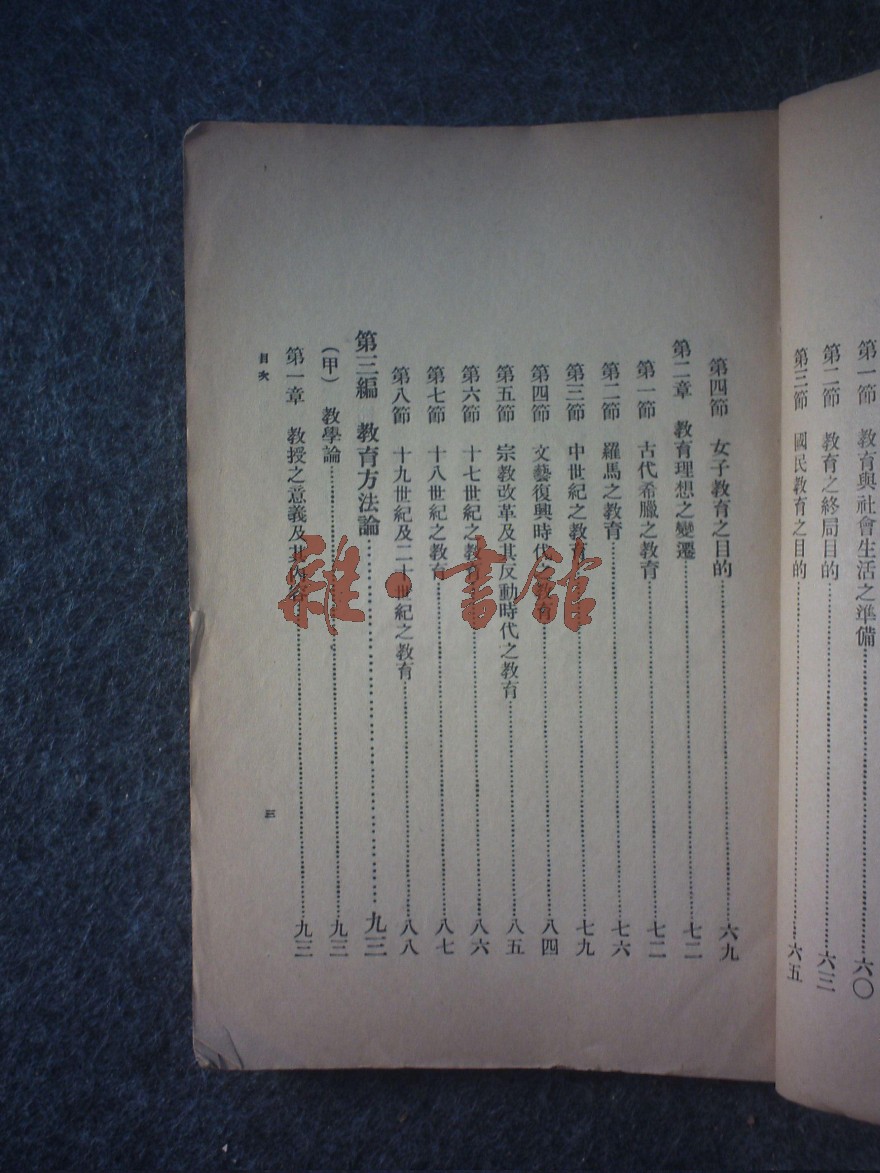 第一節　教育與社會生活之準備……六〇
第二節　教育之終局目的……六三
第三節　國民教育之目的……六五
第四節　女子教育之目的……六九
第二章　教育理想之變遷……七二
第一節　古代希臘之教育……七二
第二節　羅馬之教育……七六
第三節　中世紀之教育……七九
第四節　文藝復興時代之教育……八四
第五節　宗教改革及其反動時代之教育……八五
第六節　十七世紀之教育……八六
第七節　十八世紀之教育……八七
第八節　十九世紀及二十世紀之教育……八八
第三編　教育方法論……九三
（甲）　教學論……九三
第一章　教授之意義及其內容……九三
目次
三
雜·書館